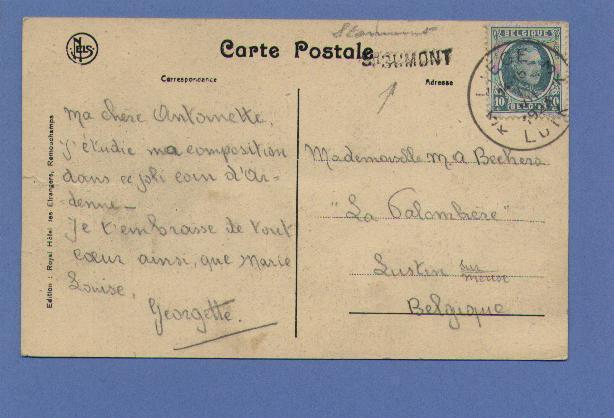 NELS
Carte Postale
STOUMONT
Stoumont
BELGIQUE
10
Correspondance
Adresse
Ma chère Antoinette,
j'étudie ma composition
dans ce joli coin d'Ar-
denne –
Je t'embrasse de tout
cœur ainsi, que Marie
Louise,
Georgette.
Mademoiselle M. A Bechers
"La Palombère"
Lustin sur
meuse
Belgique
Edition : Royal Hôtel des Etrangers, Remouchamps